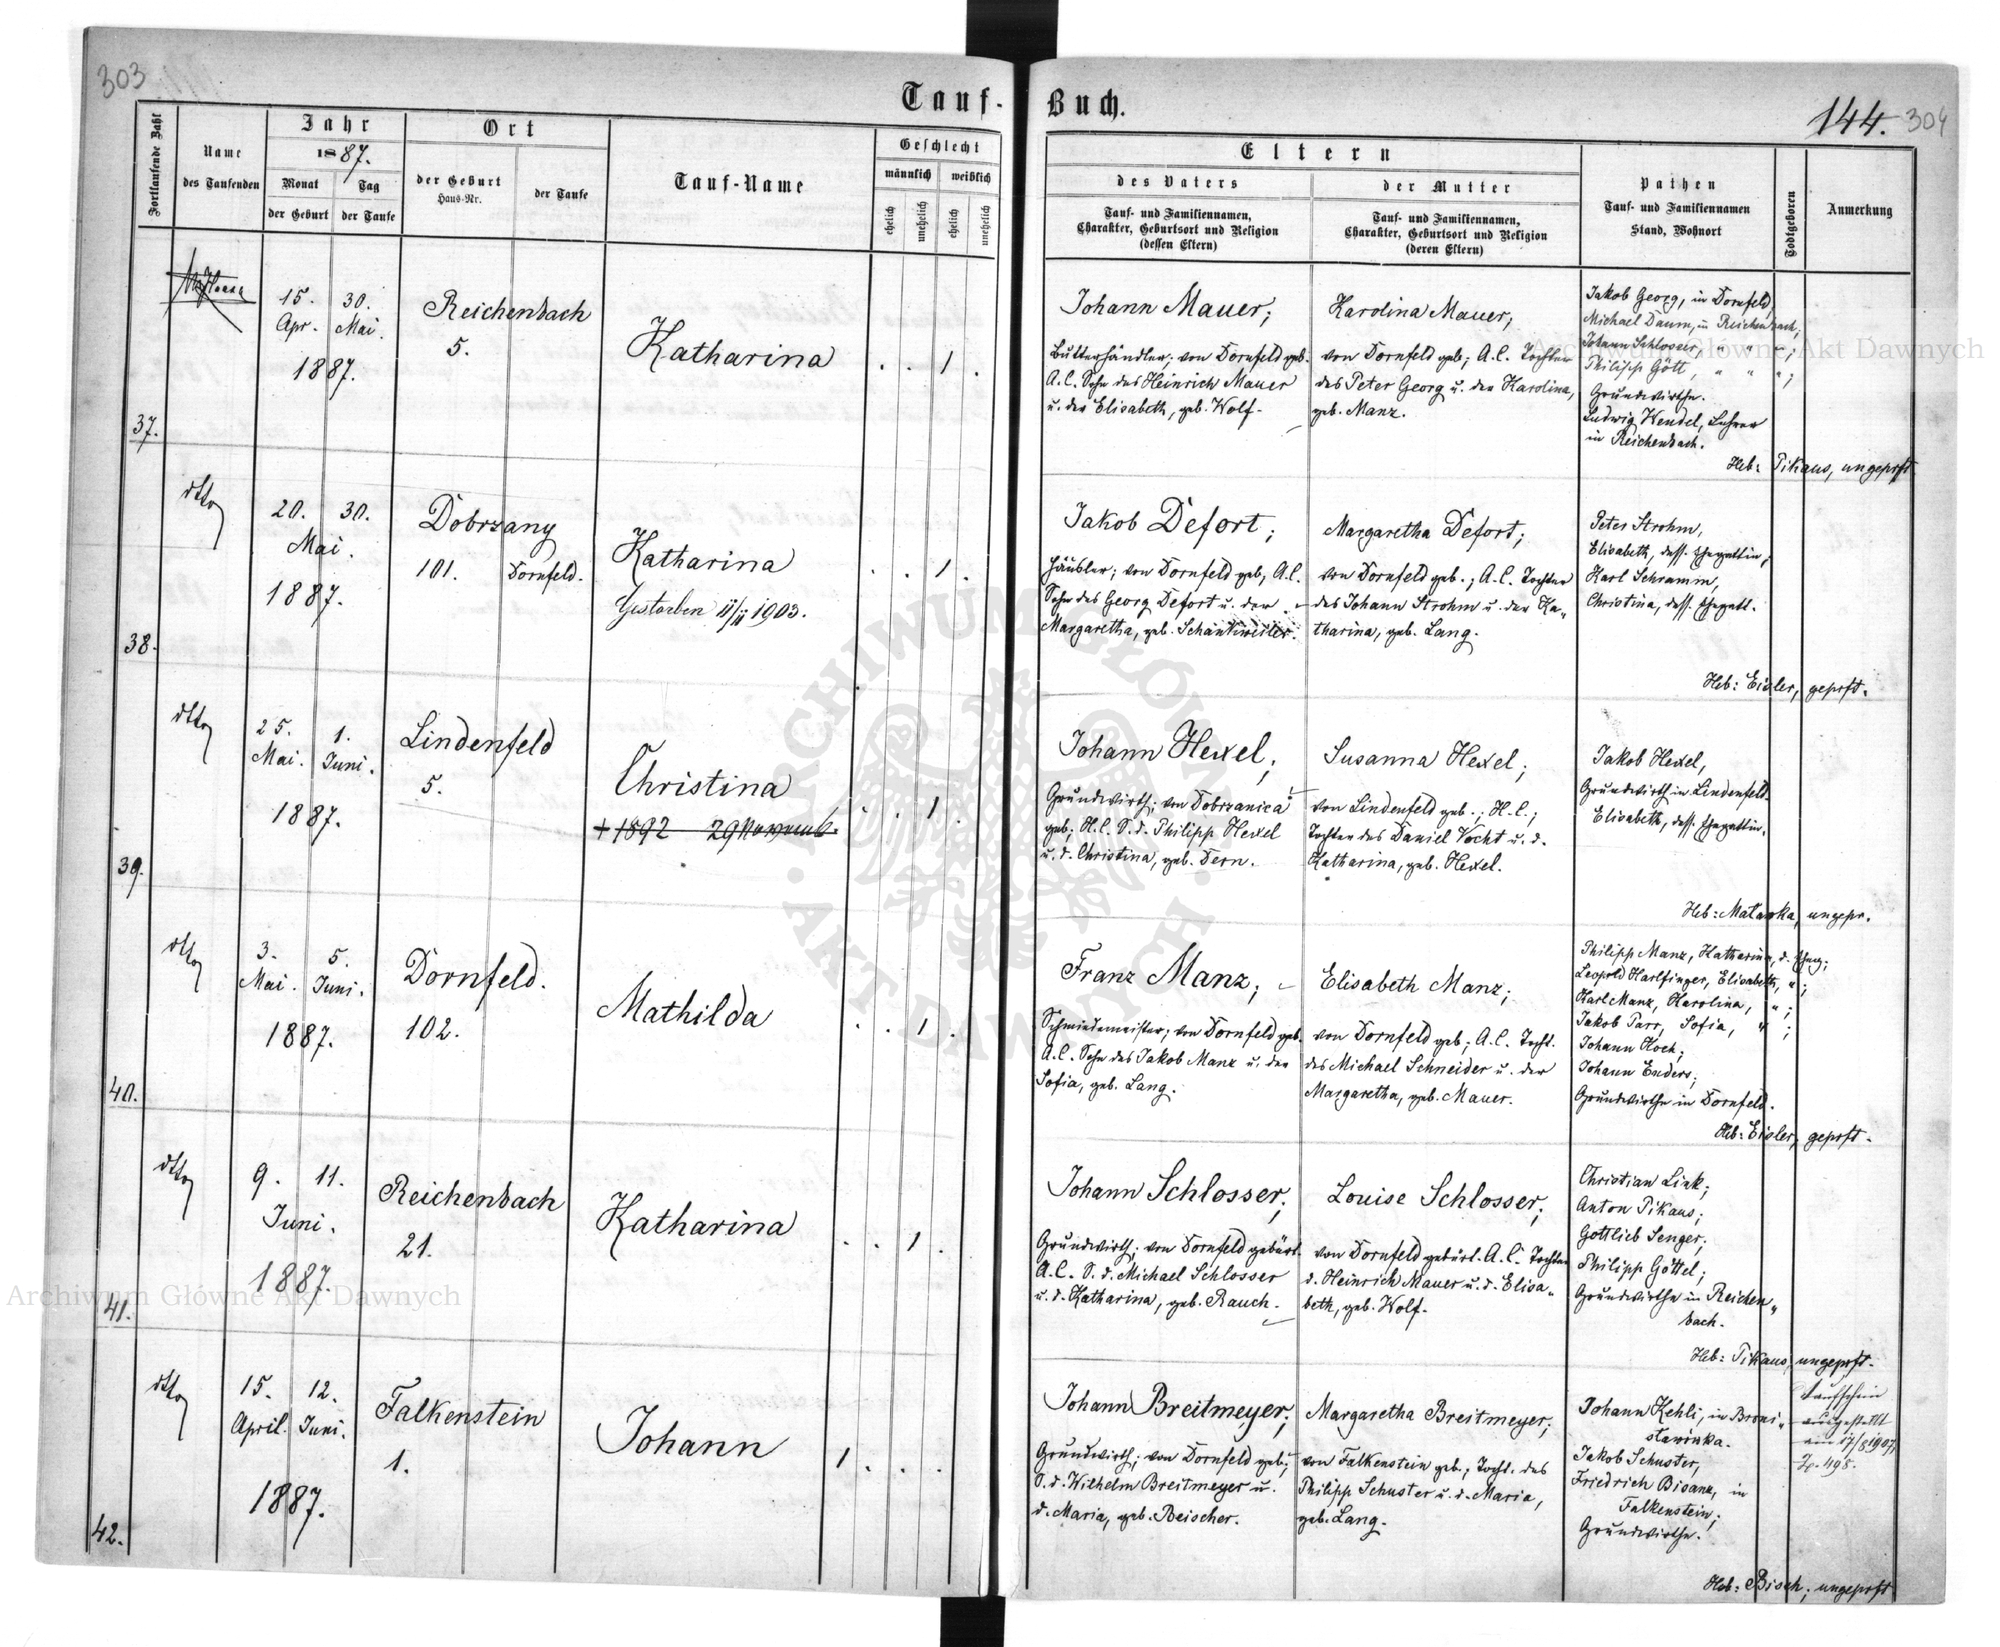 303
Tauf-Buch.
144. 304
Fortlaufende Zahl
Name
des Taufenden
Jahr
1887.
Monat
Tag
der Geburt
der Taufe
Ort
der Geburt
Haus-Nr.
der Taufe
Tauf-Name
Geschlecht
männlich
weiblich
ehelich
unehelich
ehelich
unehelich
Eltern
des Vaters
Tauf- und Familiennamen,
Charakter, Geburtsort und Religion
(dessen Eltern)
der Mutter
Tauf- und Familiennamen,
Charakter, Geburtsort und Religion
(deren Eltern)
Pathen
Tauf- und Familiennamen
Stand, Wohnort
Todtgeboren
Anmerkung
37.
15. 30.
Apr. Mai.
1887.
Reichenbach
5.
Katharina
. . 1 .
Johann Mauer;
Butterhändler; von Dornfeld geb.
A.C. Sohn des Heinrich Mauer
u. der Elisabeth, geb. Wolf.
Karolina Mauer;
von Dornfeld geb; A.C. Tochter
des Peter Georg u. der Karolina,
geb. Manz.
Jakob Georg, in Dornfeld;
Michael Daum, in Reichenbach;
Johann Schlosser, " " ";
Philipp Gött, " " ";
Grundwirthe.
Ludwig Wendel, Lehrer
in Reichenbach.
Heb: Pikaus, ungeprft
38.
dtto
20. 30.
Mai.
1887.
Dobrzany
101. Dornfeld.
Katharina
Gestorben 11/11 1903.
. . 1 .
Jakob Defort;
Häusler; von Dornfeld geb, A.C.
Sohn des Georg Defort u. der
Margaretha, geb. Schankweiler.
Margaretha Defort;
von Dornfeld geb.; A.C. Tochter
des Johann Strohm u. der Ka„
tharina, geb. Lang.
Peter Strohm,
Elisabeth, dess. Ehegattin;
Karl Schramm,
Christina, dess. Ehegatt.
Heb: Eisler, geprft.
39.
dtto
25. 1.
Mai. Juni.
1887.
Lindenfeld
5.
Christina
+ 1892 29 Novemb.
. . 1 .
Johann Hexel;
Grundwirth; von Dobrzanica
geb; H.C. S.d. Philipp Hexel
u. d. Christina, geb. Dern.
Susanna Hexel;
von Lindenfeld geb.; H.C.;
Tochter des Daniel Vocht u. d.
Katharina, geb. Hexel.
Jakob Hexel,
Grundwirth in Lindenfeld.
Elisabeth, dess. Ehegattin.
Heb: Matawka, ungepr.
40.
dtto
3. 5.
Mai. Juni.
1887.
Dornfeld.
102.
Mathilda
. . 1 .
Franz Manz;
Schmiedemeister; von Dornfeld geb.
A.C. Sohn des Jakob Manz u. der
Sofia, geb. Lang.
Elisabeth Manz;
von Dornfeld geb; A.C. Tocht.
des Michael Schneider u. der
Margaretha, geb. Mauer.
Philipp Manz, Katharina, d. Eheg;
Leopold Harlfinger, Elisabeth, ";
Karl Manz, Karolina, ";
Jakob Parr, Sofia, ";
Johann Koch;
Johann Enders;
Grundwirthe in Dornfeld.
Heb: Eisler, geprft.
41.
dtto
9. 11.
Juni.
1887.
Reichenbach
21.
Katharina
. . 1 .
Johann Schlosser;
Grundwirth; von Dornfeld gebürt.
A.C. S. d. Michael Schlosser
u. d. Katharina, geb. Rauch.
Louise Schlosser;
von Dornfeld gebürt. A.C. Tochter
d. Heinrich Mauer u. d. Elisa„
beth, geb. Wolf.
Christian Link;
Anton Pikaus;
Gottlieb Senger;
Philipp Göttel;
Grundwirthe in Reichen„
bach.
Heb: Pikaus, ungeprft.
42.
dtto
15. 12.
April. Juni.
1887.
Falkenstein
1.
Johann
1 . . .
Johann Breitmeyer;
Grundwirth; von Dornfeld geb;
S. d. Wilhelm Breitmeyer u.
d. Maria, geb. Beischer.
Margaretha Breitmeyer;
von Falkenstein geb.; Tocht. des
Philipp Schuster u. d. Maria,
geb. Lang.
Johann Kehli, in Broni„
sławówka.
Jakob Schuster,
Friedrich Bisanz, in
Falkenstein;
Grundwirthe.
Taufschein
ausgestellt
am 17/8 1907,
Z. 498.
Heb: Bisch, ungeprft
Archiwum Główne Akt Dawnych
Archiwum Główne Akt Dawnych
ARCHIWUM GŁÓWNE AKT DAWNYCH